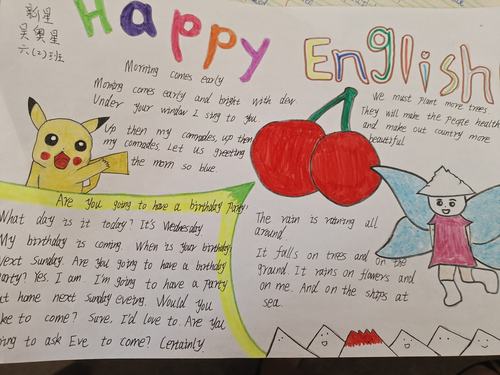 新星
吴奥星
六(2)班
Happy
English
Morning comes early
Morning comes early and bright with dew.
Under your window I sing to you
Up then my comrades, up then
my comrades. Let us greeting
the morn so blue.
We must plant more trees
They will make the people health
and make out country more
beautiful
Are you going to have a birthday Party?
What day is it today? It's Wednesday
My birthday is coming. When is your birthday
Next Sunday. Are you going to have a birthday
Party? Yes. I am. I'm going to have a Party
at home next Sunday eveing. Would you
ke to come? Sure. I'd love to. Are you
ing to ask Eve to come? Certainly.
The rain is raining all
around.
It falls on trees and on the
ground. It rains on flowers and
on me. And on the ships at
sea.